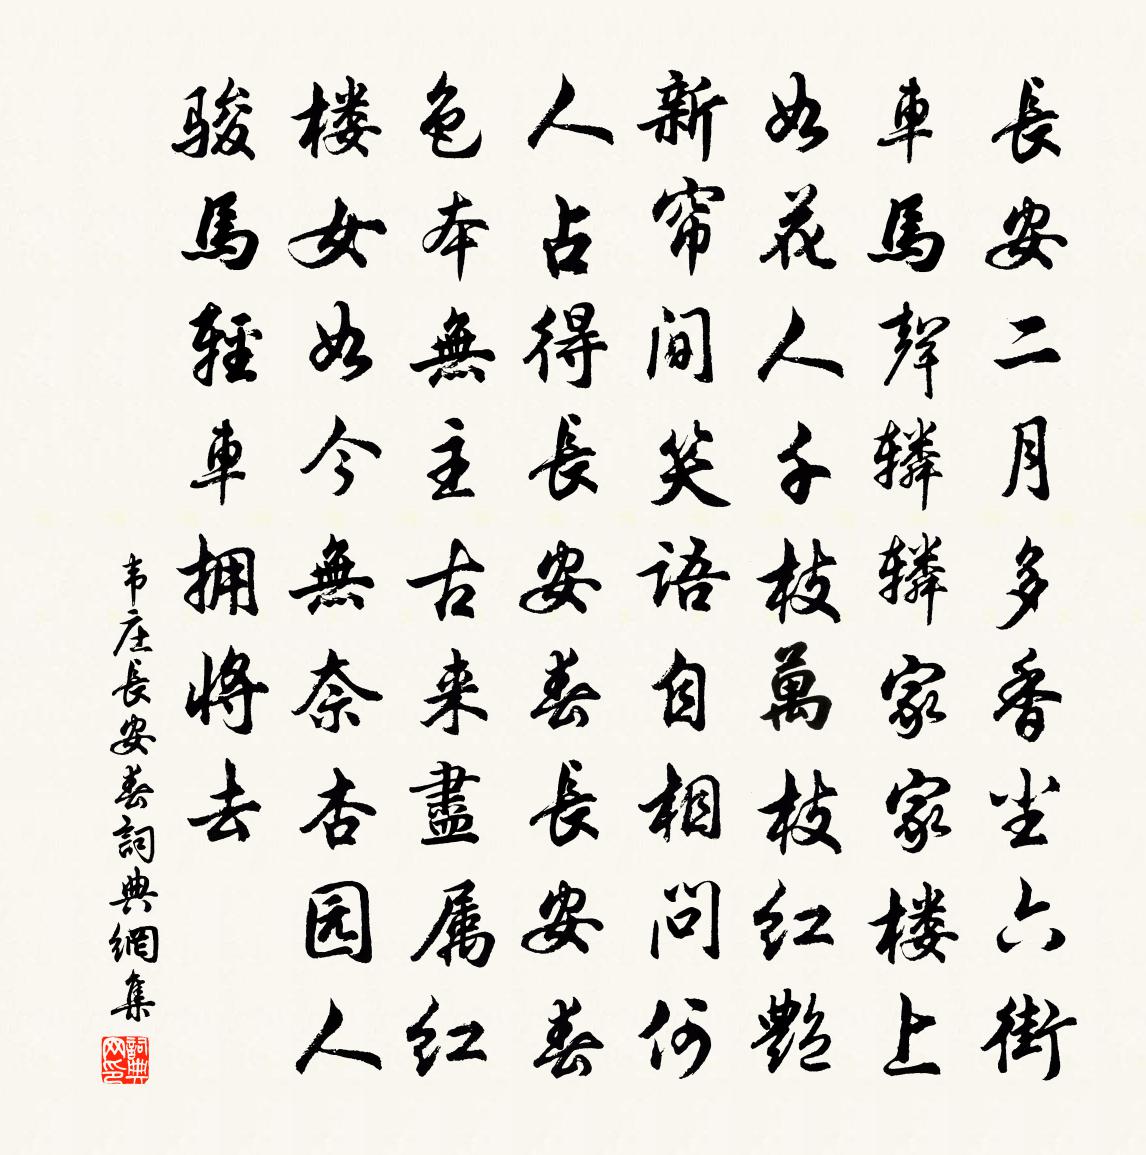 長安二月多香尘六街
車馬聲辚辚家家楼上
如花人千枝萬枝红艷
新帘间笑語自相問何
人占得長安春長安春
色本無主古来盡属红
楼女如今無奈杏园人
骏馬輕車拥將去
韦庄長安春詞典網集
詞典网印